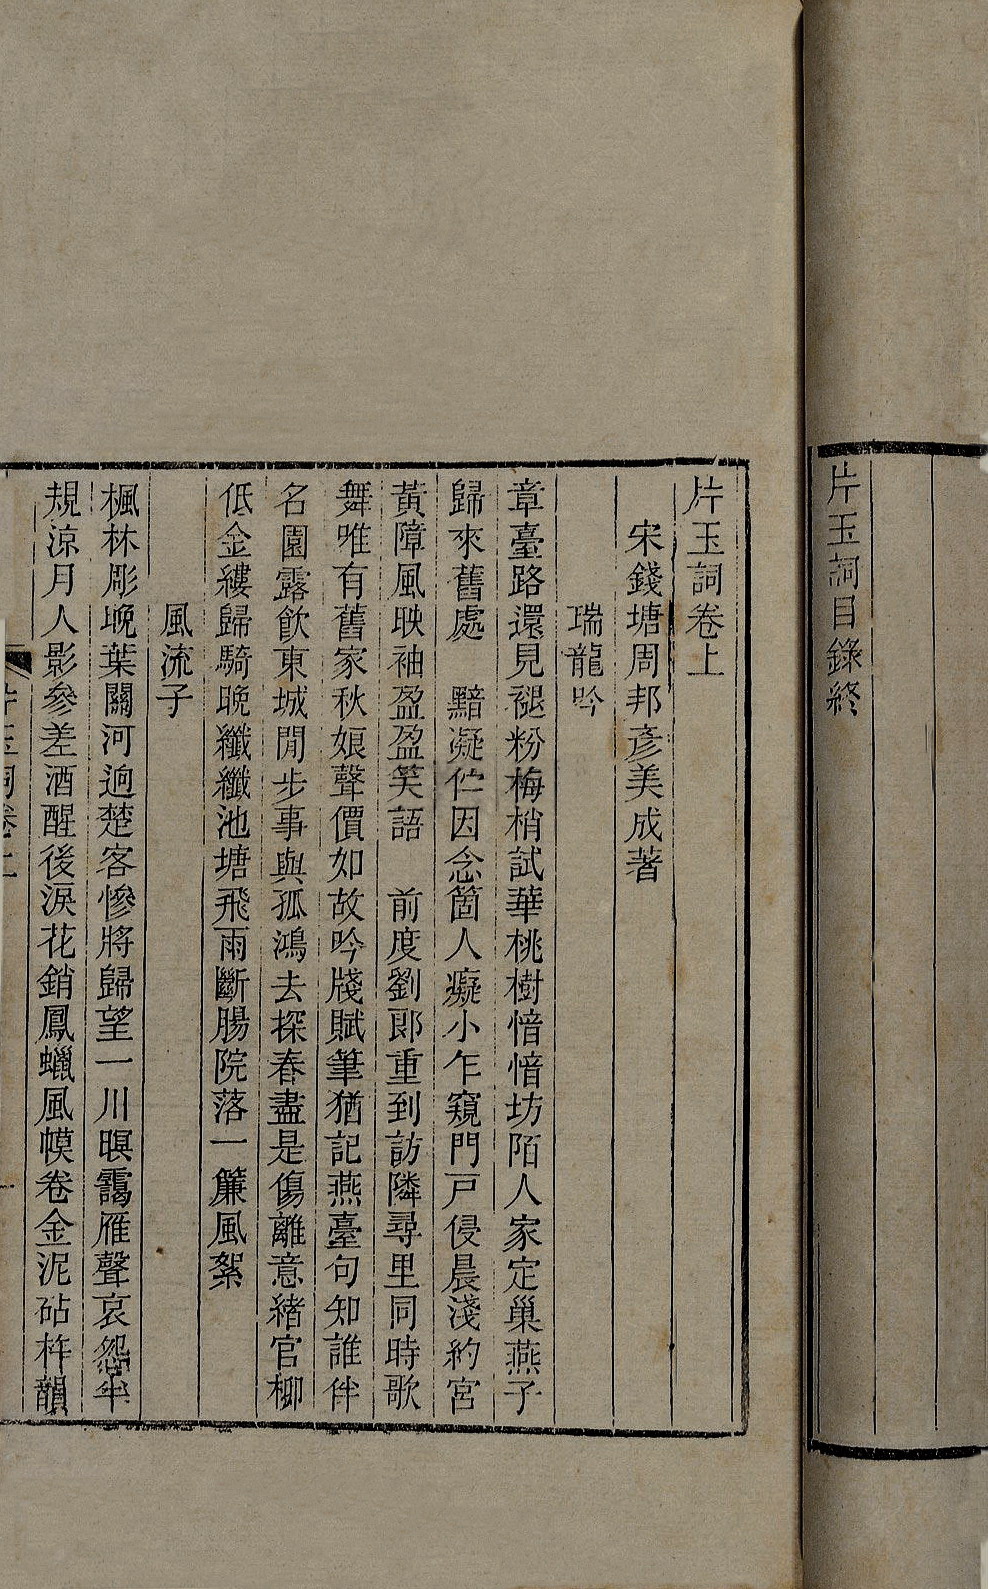 片玉詞目錄終
片玉詞卷上
宋錢塘周邦彥美成著
瑞龍吟
章臺路還見褪粉梅梢試華桃樹愔愔坊陌人家定巢燕子
歸來舊處　黯凝伫因念箇人癡小乍窺門戸侵晨淺約宮
黃障風映袖盈盈笑語　前度劉郎重到訪隣尋里同時歌
舞唯有舊家秋娘聲價如故吟牋賦筆猶記燕臺句知誰伴
名園露飲東城閒步事與孤鴻去探春盡是傷離意緒官柳
低金縷歸騎晚纖纖池塘飛雨斷腸院落一簾風絮
風流子
楓林彫晚葉關河迥楚客慘將歸望一川暝靄雁聲哀怨半
規涼月人影參差酒醒後淚花銷鳳蠟風幙卷金泥砧杵韻
片玉詞卷上
一